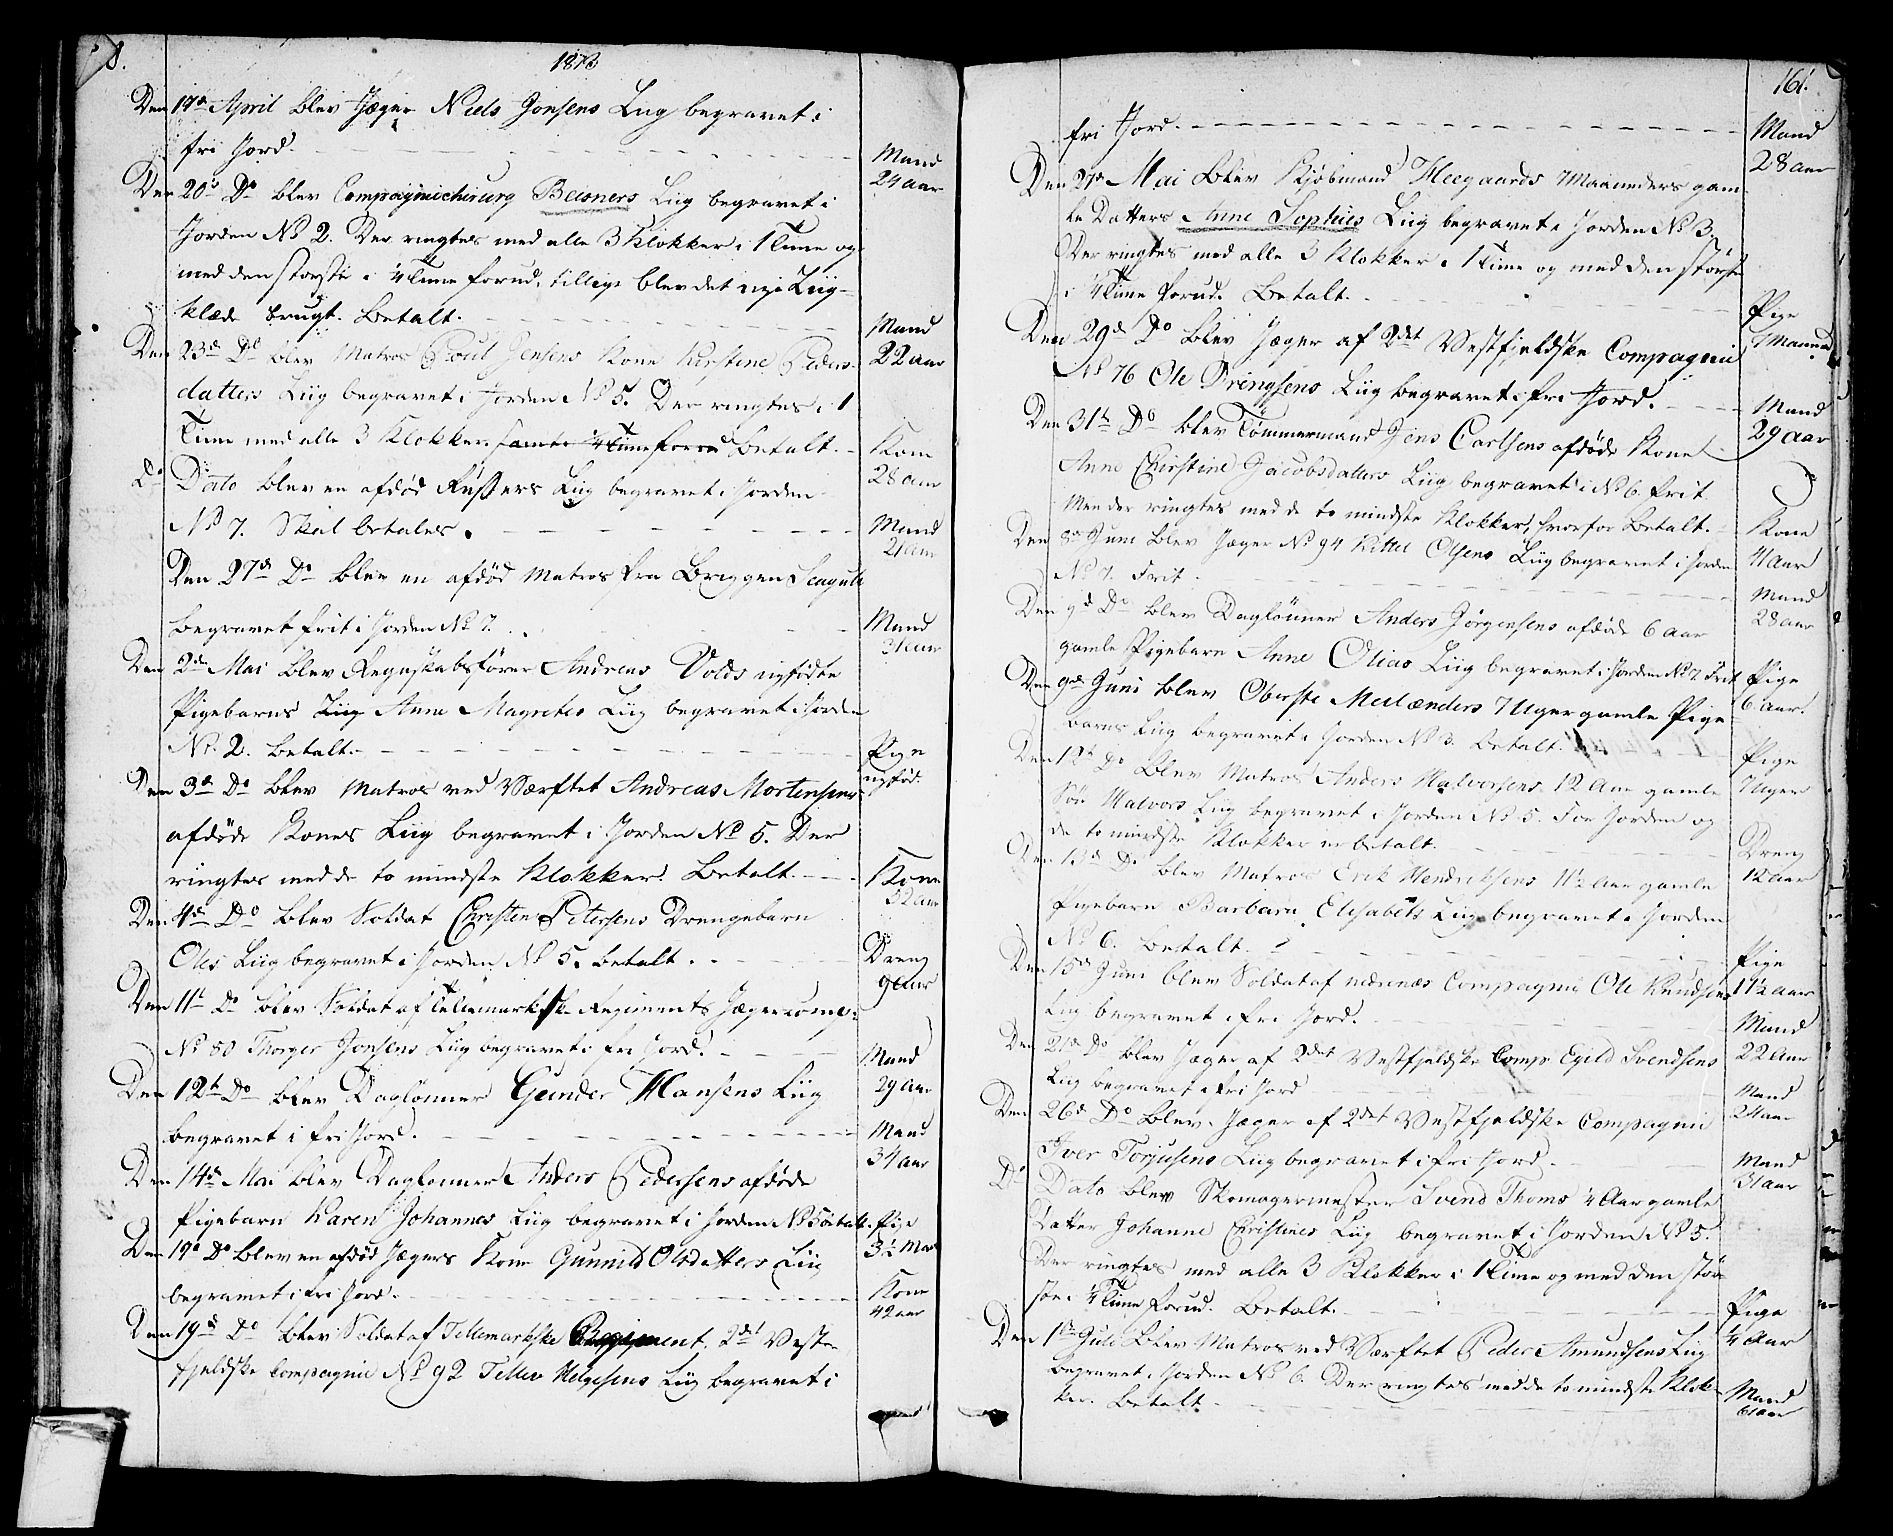 1813
Den 17de April blev Jæger Niels Jonsens Liig begravet i
fri Jord.
Mand
24 aar
Den 20de Do blev Compagniechirurg Beisners Liig begravet i
Jorden No 2. Der ringtes med alle 3 Klokker i 1 Time og
med den største i 1/4 Time forud, tillige blev det nye Liig-
klæde brugt. Betalt.
Mand
22 aar
Den 23de Do blev Matros Poul Jensens Kone Kirstine Peders-
datters Liig begravet i Jorden No 5. Der ringtes i 1
Time med alle 3 Klokker, samt 1/4 Time forud Betalt.
Kone
28 aar
Do Dato blev en afdød Russers Liig begravet i Jorden
No 7. Skal betales.
Mand
21 aar
Den 27de Do blev en afdød Matros fra Briggen Seagull
begravet frit i Jorden No 7.
Mand
31 aar
Den 2den Mai blev Regnskabsfører Andreas Volds nyfødte
Pigebarns Liig Anne Magretes Liig begravet i Jorden
No. 2. betalt.
Pige
nyfød.
Den 3de Do blev Matros ved Værftet Andreas Mortensens
afdøde Kones Liig begravet i Jorden No 5. Der
ringtes med de to mindste Klokker. Betalt.
Kone
32 aar
Den 4de Do blev Soldat Christen Petersens Drengebarn
Oles Liig begravet i Jorden No 5. betalt.
Dreng
9 aar
Den 11te Do blev Soldat af Tellemarkske Regiments Jægercomp:
No 80 Thorger Jonsens Liig begravet i fri Jord.
Mand
29 aar
Den 12te Do blev Daglønner Gunder Hansens Liig
begravet i fri Jord.
Mand
34 aar
Den 14de Mai blev Daglønner Anders Pedersens afdøde
Pigebarn Karen Johannes Liig begravet i Jorden No 5 betalt.
Pige
3 1/2 Maa
Den 19de Do blev en afdød Jægers Kone Gunnild Olsdatters Liig
begravet i fri Jord.
Kone
42 aar
Den 19de Do blev Soldat af Tellemarkske Regiment, 2det Vest-
fjeldske Compagnie No 92 Tellev Helgesens Liig begravet i
161.
fri Jord.
Mand
28 aar
Den 27de Mai blev Kjøbmand Heegaards 7 Maaneders gam-
le Datters Anne Sophies Liig begravet i Jorden No 3.
Der ringtes med alle 3 Klokker i 1 Time og med den største
i 1/4 Time forud. Betalt.
Pige
7 Maaned
Den 29de Do blev Jæger af 2det Vestfjeldske Compagnie
No 76 Ole Dringsens Liig begravet i fri Jord.
Mand
29 aar
Den 31te Do blev Tømmermand Jens Carlsens afdøde Kone
Anne Chirstine Jacobsdatters Liig begravet i No 6. frit
Men der ringtes med de to mindste Klokker, hvorfor Betalt.
Kone
41 aar
Den 8de Juni blev Jæger No 94 Kittel Olsens Liig begravet i Jorden
No 7. Frit.
Mand
28 aar
Den 9de Do blev Daglønner Anders Jørgensens afdøde 6 aar
gamle Pigebarn Anne Olias Liig begravet i Jorden No 7 Frit
Pige
6 aar.
Den 9de Juni blev Oberste Meilænders 7 Uger gamle Pige
barns Liig begravet i Jorden No 3. betalt.
Pige
7 Uger
Den 12te Do blev Matros Anders Halvorsens 12 Aar gamle
Søn Halvors Liig begravet i Jorden No 5. For Jorden og
de to mindste Klokker er betalt.
Dreng
12 aar
Den 13de Do blev Matros Erik Hendriksens 1 1/2 Aar gamle
Pigebarn Barbara Elisabets Liig begravet i Jorden
No 6. betalt.
Pige
1 1/2 aar
Den 15de Juni blev Soldat af nedenæs Compagnie Ole Knudsens
Liig begravet i fri Jord.
Mand
22 Aar
Den 21de Do blev Jæger af 2det Vestfjeldske Comp: Egild Svendsens
Liig begravet i fri Jord
Mand
24 aar
Den 26de Do blev Jæger af 2det Vestfjeldske Compagnie
Iver Torjusens Liig begravet i fri Jord.
Mand
31 aar
Do Dato blev Skomagermester Svend Thoms 1/4 Aar gamle
Datter Johanne Christines Liig begravet i Jorden No 5.
Der ringtes med alle 3 Klokker i 1 Time og med den stør-
ste i 1/4 Time forud. Betalt.
Pige
1/4 Aar
Den 1ste Juli blev Matros ved Værftet Peder Amundsens Liig
begravet i Jorden No 6. Der ringtes med de to mindste Klok-
ker. Betalt.
Mand